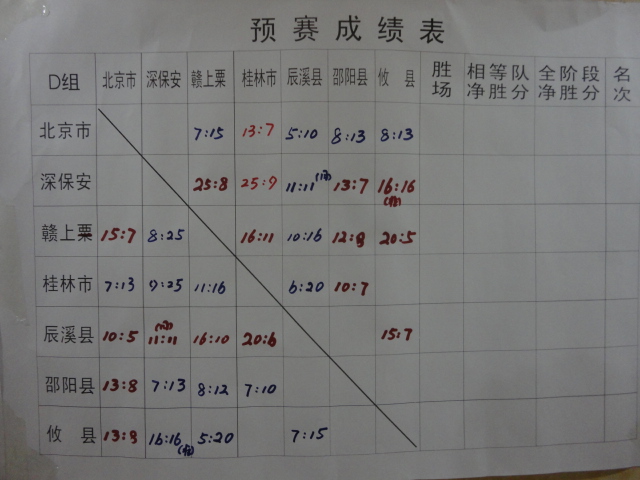 预赛成绩表
D组 北京市 深保安 赣上栗 桂林市 辰溪县 邵阳县 攸 县 胜场 相等队净胜分 全阶段净胜分 名次
北京市 7:15 13:7 5:10 8:13 8:13
深保安 25:8 25:9 11:11 13:7 16:16
赣上栗 15:7 8:25 16:11 10:16 12:8 20:5
桂林市 7:13 9:25 11:16 6:20 10:7
辰溪县 10:5 11:11 16:10 20:6 15:7
邵阳县 13:8 7:13 8:12 7:10
攸 县 13:8 16:16 5:20 7:15